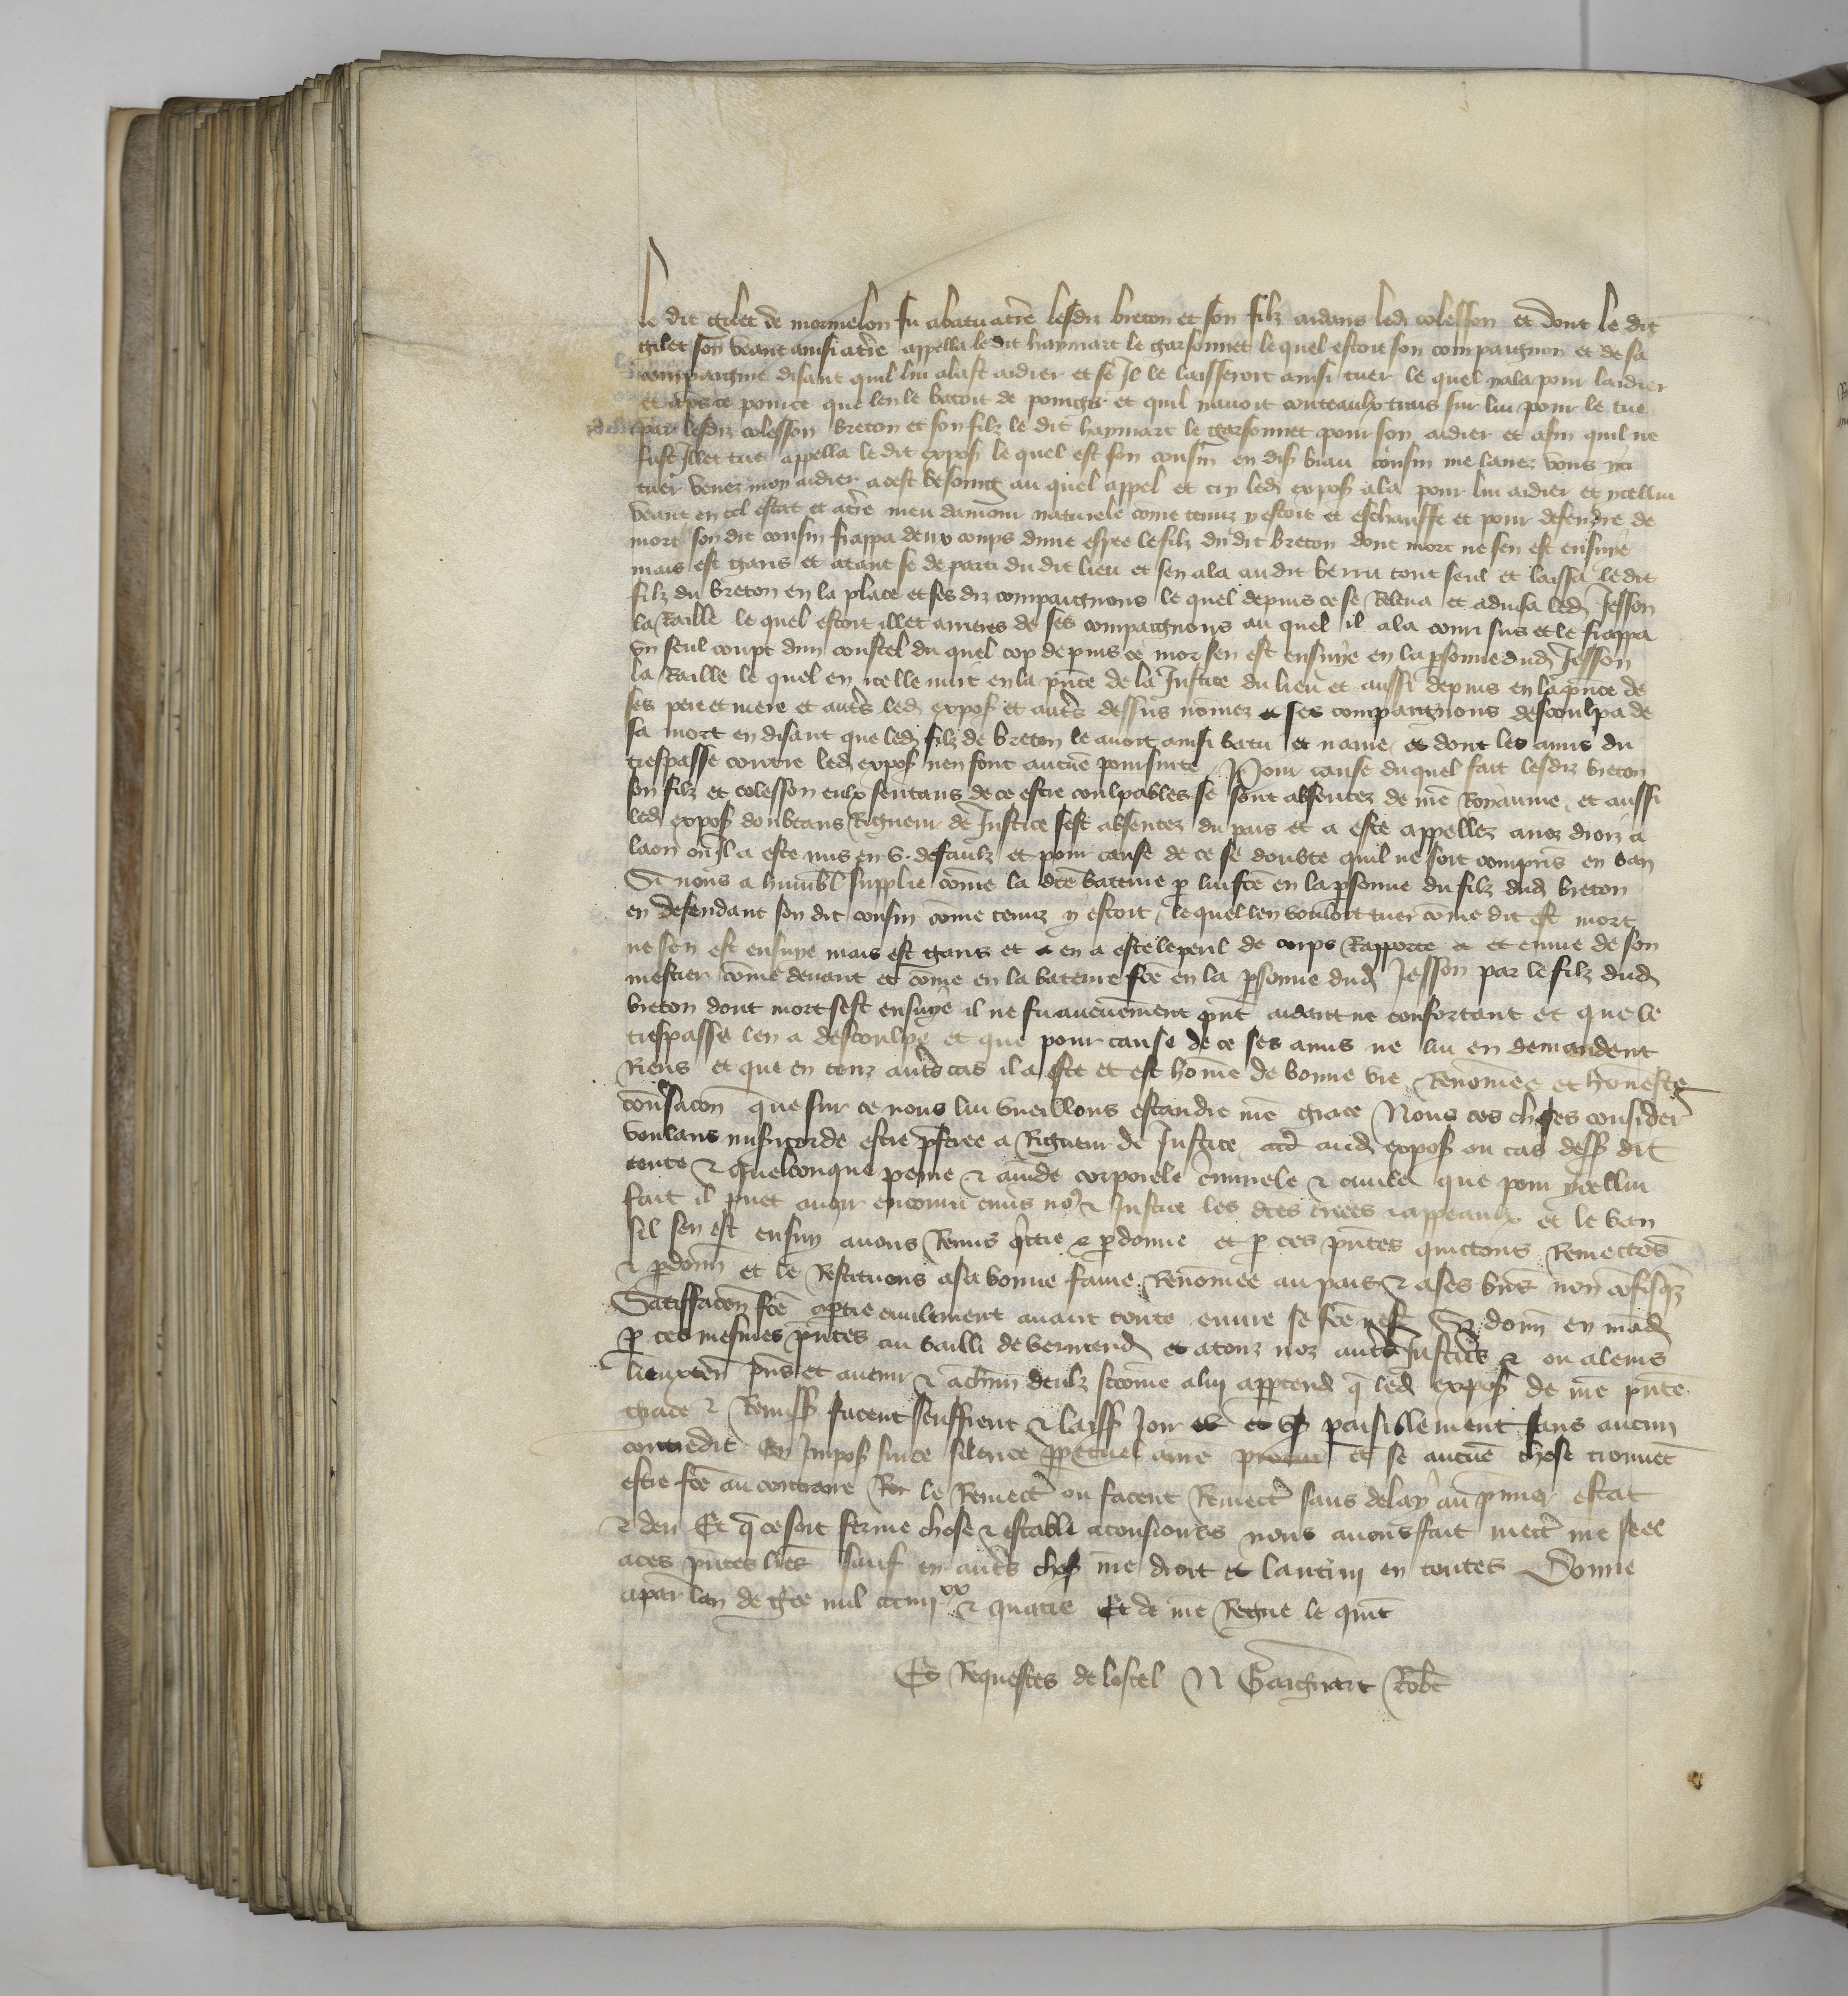 le dit gilet de mormelon fu abatu at̄re lesdiz breton et son filz aidans led colesson et dont le dit
gilet son veant ainsi at̄re appella le dit haymart le garsonnet le quel estoit son compaignon et de sa
compaignie disant quil lui alast aidier et se Il le laisseroit ainsi tuer le quel y ala pour laidier
et ap̄s ce pour ce que len le batoit de poings et quil y avoit couteaulx trais sur lui pour le tue
par lesdiz colesson breton et son filz le dit haymart le garsonnet pour son aidier et afin quil ne
fust Illec tue appella le dit expos le quel est son cousin en dis biau cousin me lairez vous yci
tuer venez moy aidier a cest besoing au quel appel et cry led expos ala pour lui aidier et ycellui
veant en tel estat et at̄re meu damour naturele come tenuz y estoit et eschauffe et pour defendre de
mort son dit cousin frappa deux coups dune espee le filz du dit breton dont mort ne sen est ensuye
mais est garis et atant se departi du dit lieu et sen ala au dit berru tout seul et laissa le dit
filz du breton en la place et ses diz compaignons le quel depuis ce se Releva et advisa led Jesson
la Raille le quel estoit illec arrieres de ses compaignons au quel il ala courir sus et le frappa
un seul coupt dun coustel du quel cop depuis ce mor sen est ensuye en la psonne dud Jesson
la Raille le quel en icelle nuit en la p̄nce de la Justice du lieu et aussi depuis en la p̄nce de
ses pere et mere et aut̄s led expos et aut̄s dessus nōmez et ses compaignons descoulpa de
sa mort en disant que led filz de breton le avoit ainsi batu et navre et dont les amis du
trespasse contre led expos nen font aucūe poursuite Pour cause duquel fait lesdiz breton
son filz et colesson eulx sentans de ce estre coulpables se sont absentez de nr̄e Royaume et aussi
led expos doubtans Rigueur de Justice sest absentez du pais et a este appellez a noz droiz a
laon ou Il a este mis en v. defaulz et pour cause de ce se doubte quil ne soit compris en ban
Si nous a humbl supplie cōme la dc̄e bateure p lui fc̄e en la psonne du filz dud breton
en defendant son dit cousin cōme tenuz y estoit le quel len vouloit tuer cōme dit est mort
ne sen est ensuye mais est garis et en a este le peril de corps Rapporte et euvre de son
mestier cōme devant et cōme en la bateure fc̄e en la psonne dud Jesson par le filz dud
breton dont mort sest ensuye il ne fu aucunement p̄nt aidant ne confortant et que le
trespasse len a descoulpe et que pour cause de ce ses amis ne lui en demandent
Riens et que en touz aut̄s cas il a este et est hōme de bonne vie Renōmee et honneste
conv̄sacōn que sur ce nous lui vueillons estandre nr̄e grace Nous ces choses consider
voulans misericorde estre pferee a Rigueur de Justice aud expos ou cas dess dit
toute & quelconque peine & am̄de corporele crimnele & civile que pour ycellui
fait il puet avoir encouru env̄s no9 & Justice les dc̄es inees & appeaulx et le ban
sil sen est ensuy avons Remis quitte & pdonne et p ces p̄ntes quictons Remectōs
& pdonn̄ et le Restituons a sa bonne fame Renōmee au pais & a ses biēs non cōfisq̄z
Satisffacōn fc̄e a ptie civilement avant toute euvre se fc̄e nest Si donn̄ en mād
p ces mesmes p̄ntes au bailli de vermend et a touz noz aut̄s Justic̄s & ou a leurs
lieuxten̄ p̄ns et avenir & a ch̄un deulz si cōme a lui apptend q̄ led expos de nr̄e p̄nte
grace & Remiss facent seuffrent & laiss Joir et us paisiblement sans aucun
contredit En Impos sur ce silence ppetuel a nr̄e procur et se aucūe chose trouvēt
estre fc̄e au contraire le Remect̄ ou facent Remect̄ sans delay au p̄mier estat
& deu Et q̄ ce soit ferme chose & estable a tousiours nous avons fait mect̄ nr̄e seel
a ces p̄ntes lr̄es sauf en aut̄s chos nr̄e droit et lautruy en toutes Donne
a par̄ lan de gr̄ce mil ccciiij xx & quatre Et de nr̄e Regne le quīt
Es Requestes de lostel N Gaignart Rob̄t